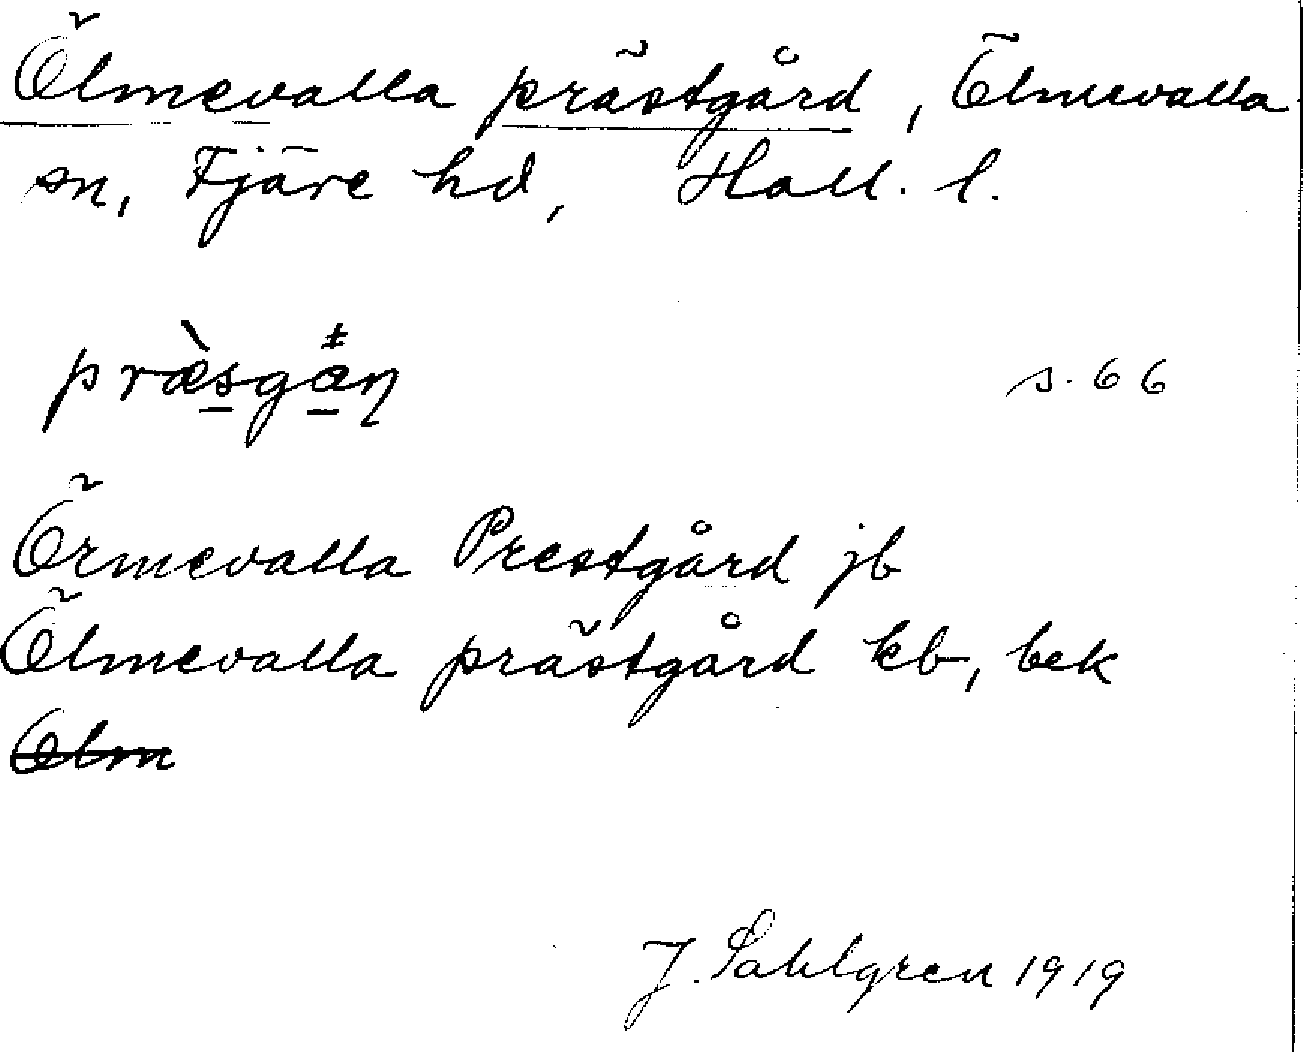 Ölmevalla prästgård, Ölmevalla
sn, Fjäre hd, Hall. l.
præ̀sgån s. 66
Örmevalla Prestgård jb
Ölmevalla prästgård kb, bek
Olm
J. Sahlgren 1919